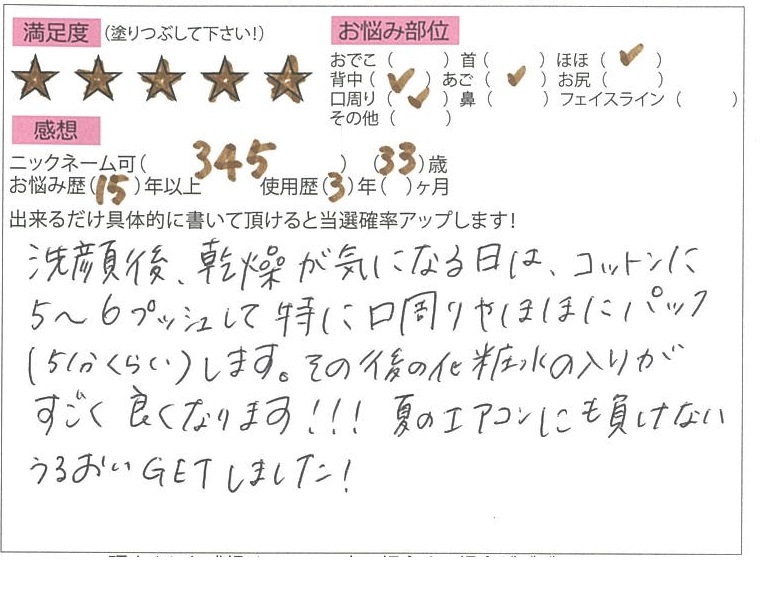 満足度 (塗りつぶして下さい!)
お悩み部位
おでこ ( ) 首 ( ) ほほ ( ✓ )
背中 ( ✓ ) あご ( ✓ ) お尻 ( )
口周り ( ✓ ) 鼻 ( ) フェイスライン ( )
その他 ( )
感想
ニックネーム可( 345 ) (33)歳
お悩み歴(15)年以上 使用歴(3)年( )ヶ月
出来るだけ具体的に書いて頂けると当選確率アップします!
洗顔後、乾燥が気になる日は、コットンに
5〜6プッシュして特に口周りやほほにパック
(5分くらい)します。その後の化粧水の入りが
すごく良くなります!!! 夏のエアコンにも負けない
うるおいGETしました!